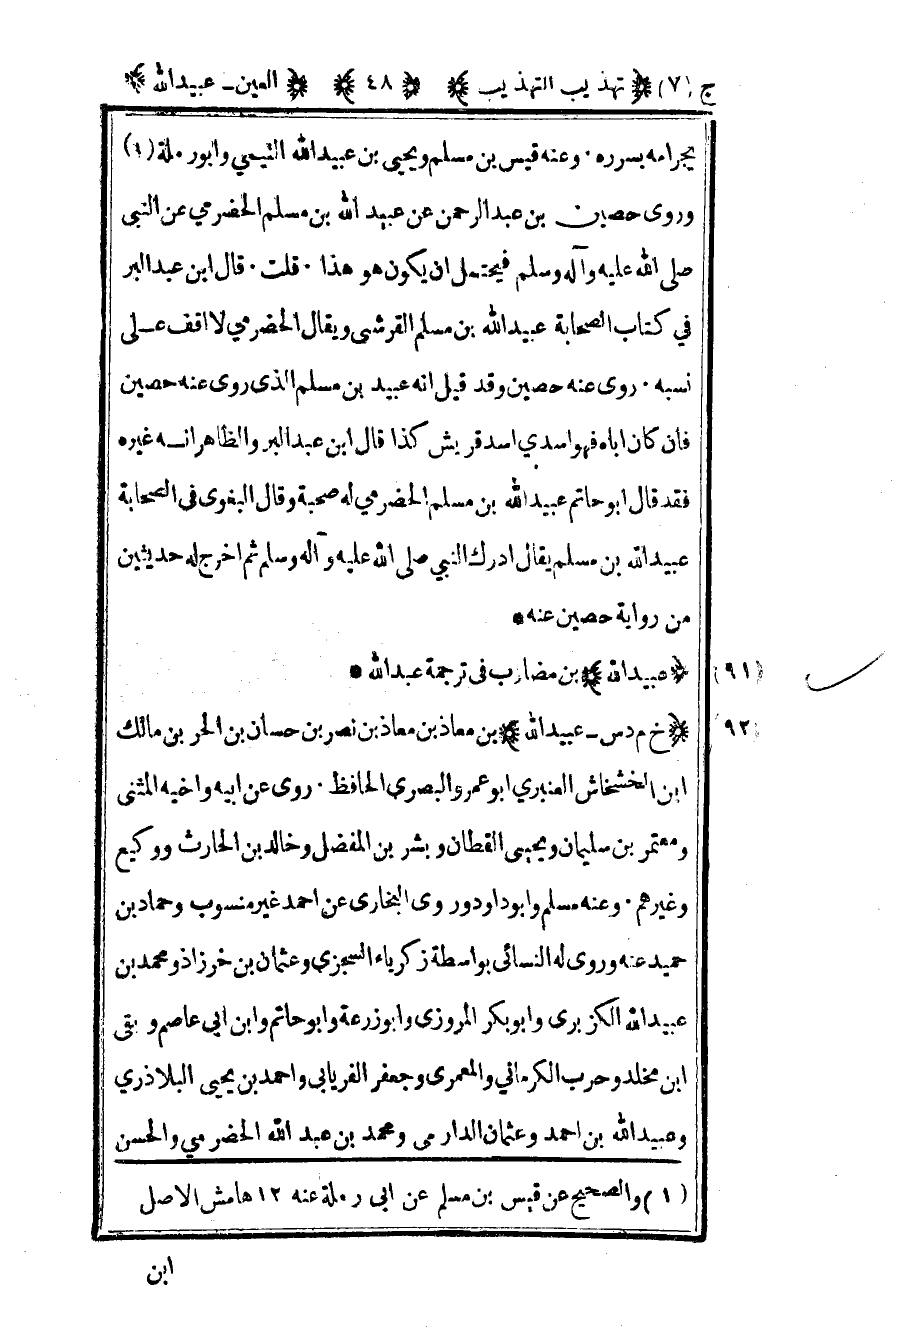 ج (٧) ﴿ تهذيب التهذيب ﴾ ﴿ ٤٨ ﴾ ﴿ العين - عبيدالله ﴾
يجرامه بسرره ٠ وعنه قيس بن مسلم ويحيى بن عبيدالله التيمي وابورملة (١)
وروى حصين بن عبدالرحمن عن عبيد الله بن مسلم الحضرمي عن النبي
صلى الله عليه وآله وسلم فيحتمل ان يكون هو هذا ٠ قلت ٠ قال ابن عبدالبر
في كتاب الصحابة عبيدالله بن مسلم القرشى ويقال الحضرمي لا اقف على
نسبه ٠ روى عنه حصين وقد قيل انه عبيد بن مسلم الذى روى عنه حصين
فان كان اياه فهو اسدي اسد قريش كذا قال ابن عبدالبر والظاهر انه غيره
فقد قال ابوحاتم عبيدالله بن مسلم الحضرمي له صحبة وقال البغوى فى الصحابة
عبيدالله بن مسلم يقال ادرك النبي صلى الله عليه وآله وسلم ثم اخرج له حديثين
من رواية حصين عنه *
(٩١) ﴿ عبيدالله ﴾ بن مضارب فى ترجمة عبدالله *
(٩٢) ﴿ خ م د س - عبيدالله ﴾ بن معاذ بن معاذ بن نصر بن حسان بن الحر بن مالك
ابن الخشخاش العنبري ابو عمرو البصري الحافظ ٠ روى عن ابيه واخيه المثنى
ومعتمر بن سليمان ويحيى القطان وبشر بن المفضل وخالد بن الحارث ووكيع
وغيرهم ٠ وعنه مسلم وابو داود وروى البخارى عن احمد غير منسوب وحماد بن
حميد عنه وروى له النسائى بواسطة زكرياء السجزي وعثمان بن خرزاذ ومحمد بن
عبيدالله الكزبرى وابوبكر المروزى وابوزرعة وابوحاتم وابن ابي عاصم و بقى
ابن مخلد وحرب الكرماني والمعمرى وجعفر الفريابي واحمد بن يحيى البلاذري
وعبيدالله بن احمد وعثمان الدارمى ومحمد بن عبد الله الحضرمي والحسن
(١) والصحيح عن قيس بن مسلم عن ابى رملة عنه ١٢ هامش الاصل
ابن